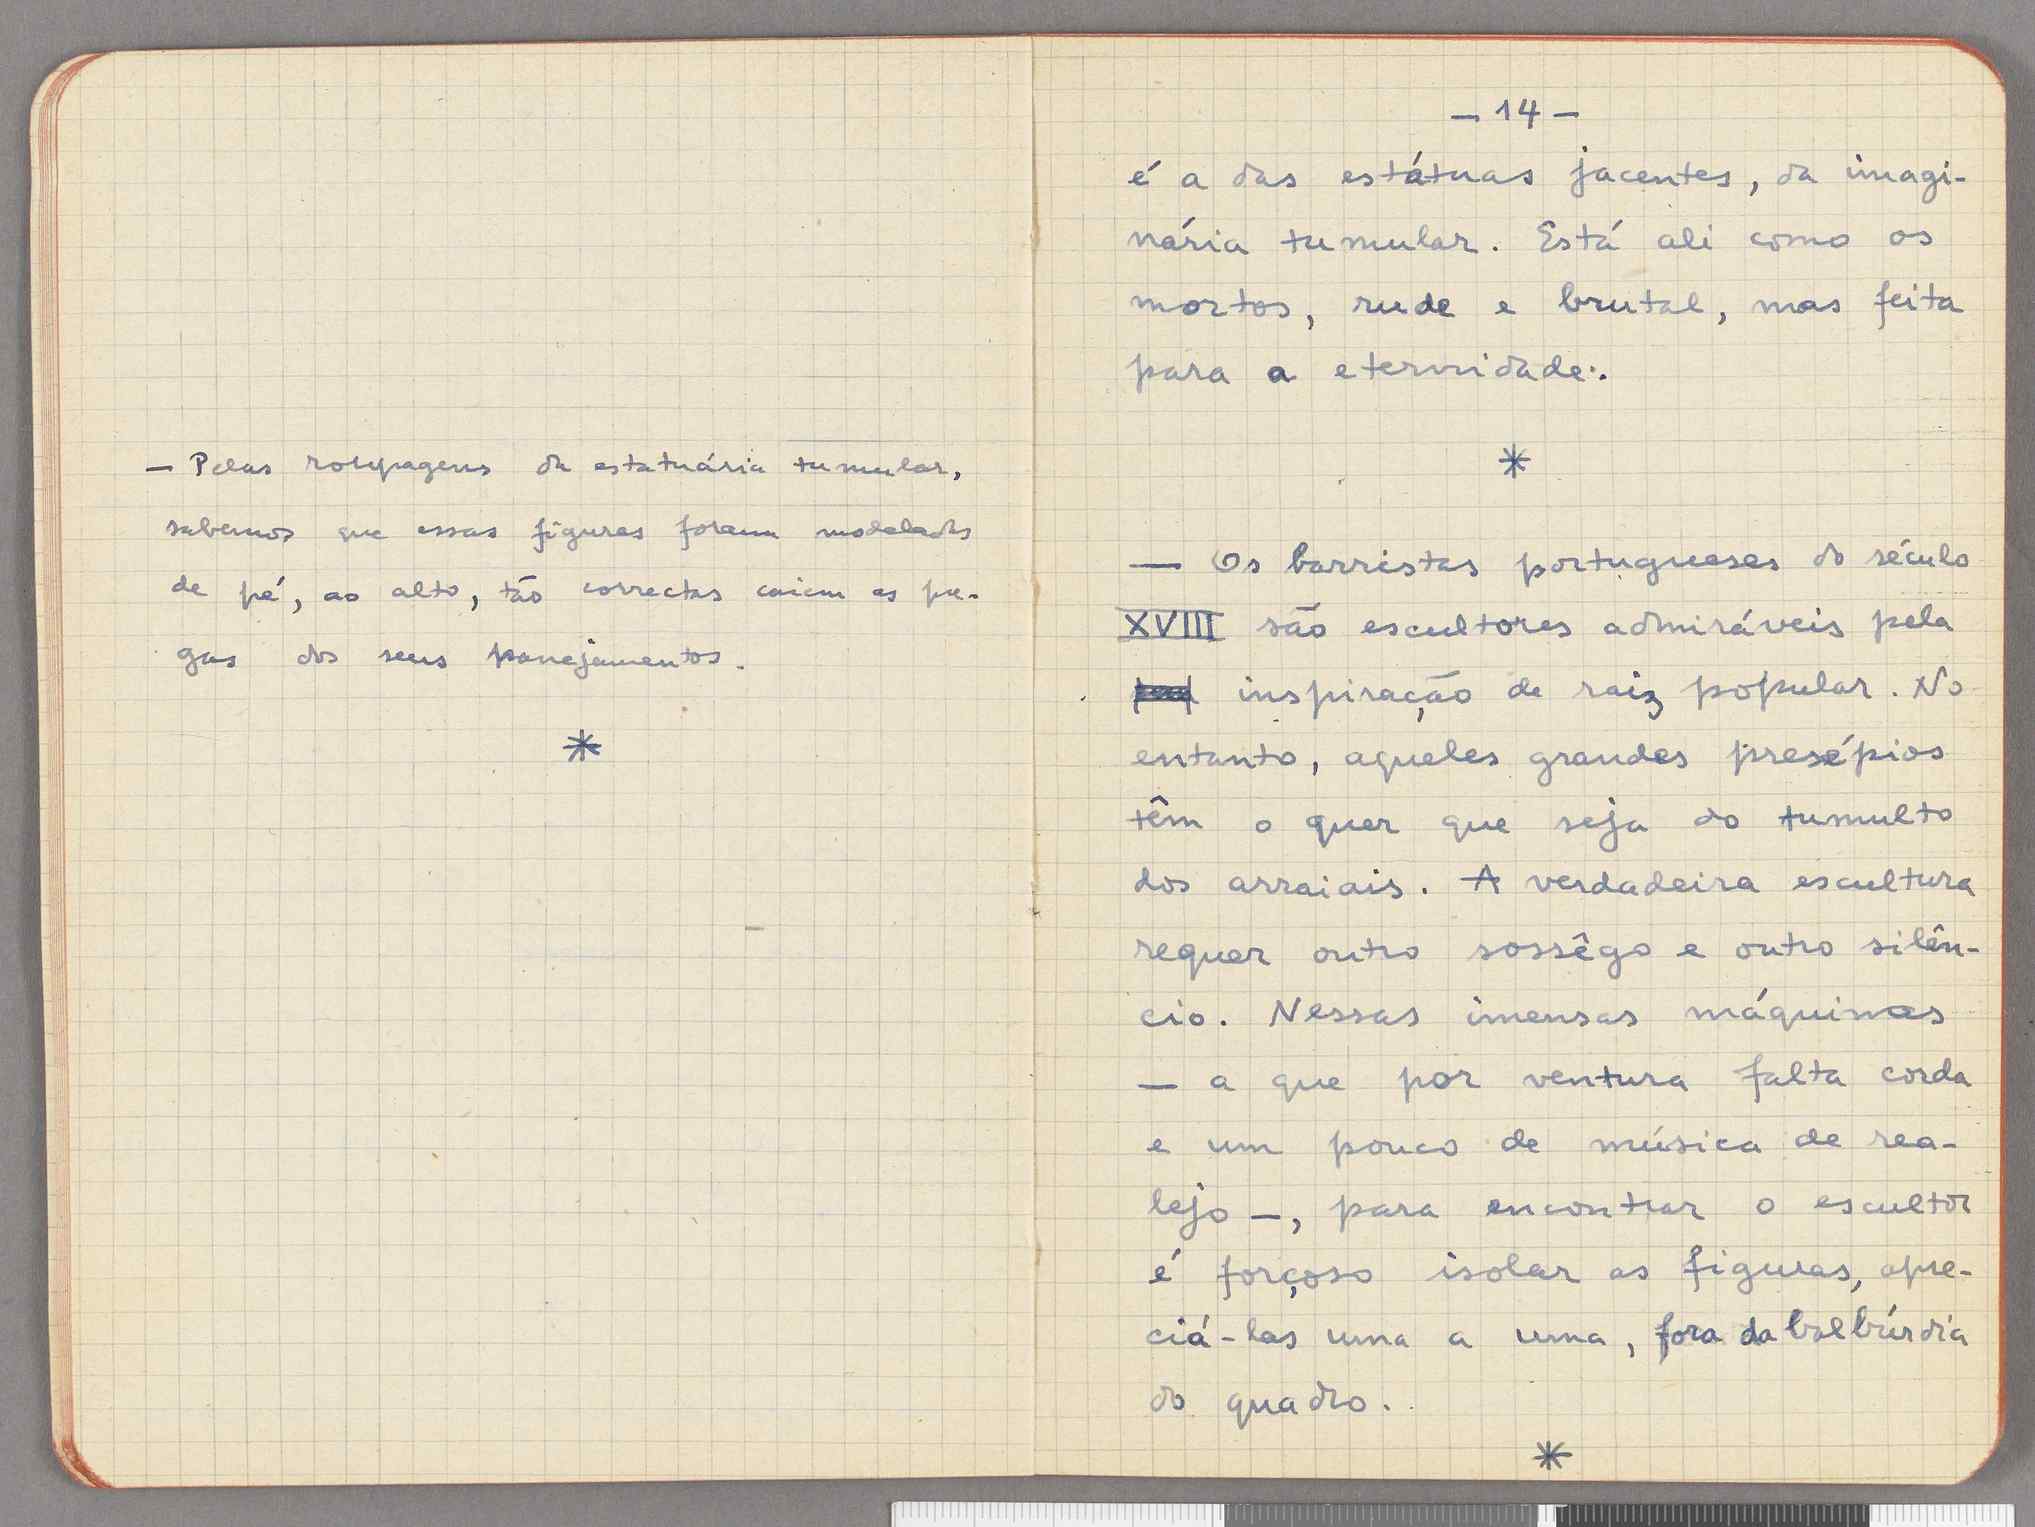 — Pelas roupagens da estatuária tumular,
sabemos que essas figuras foram modeladas
de pé, ao alto, tão correctas caiem as pre-
gas dos seus panejamentos.
*
— 14 —
é a das estátuas jacentes, da imagi-
nária tumular. Está ali como os
mortos, rude e brutal, mas feita
para a eternidade.
*
— Os barristas portugueses do século
XVIII são escultores admiráveis pela
inspiração de raiz popular. No
entanto, aqueles grandes presépios
têm o quer que seja do tumulto
dos arraiais. A verdadeira escultura
requer outro sossêgo e outro silên-
cio. Nessas imensas máquinas
— a que por ventura falta corda
e um pouco de música de rea-
lejo —, para encontrar o escultor
é forçoso isolar as figuras, apre-
ciá-las uma a uma, fora da balbúrdia
do quadro.
*